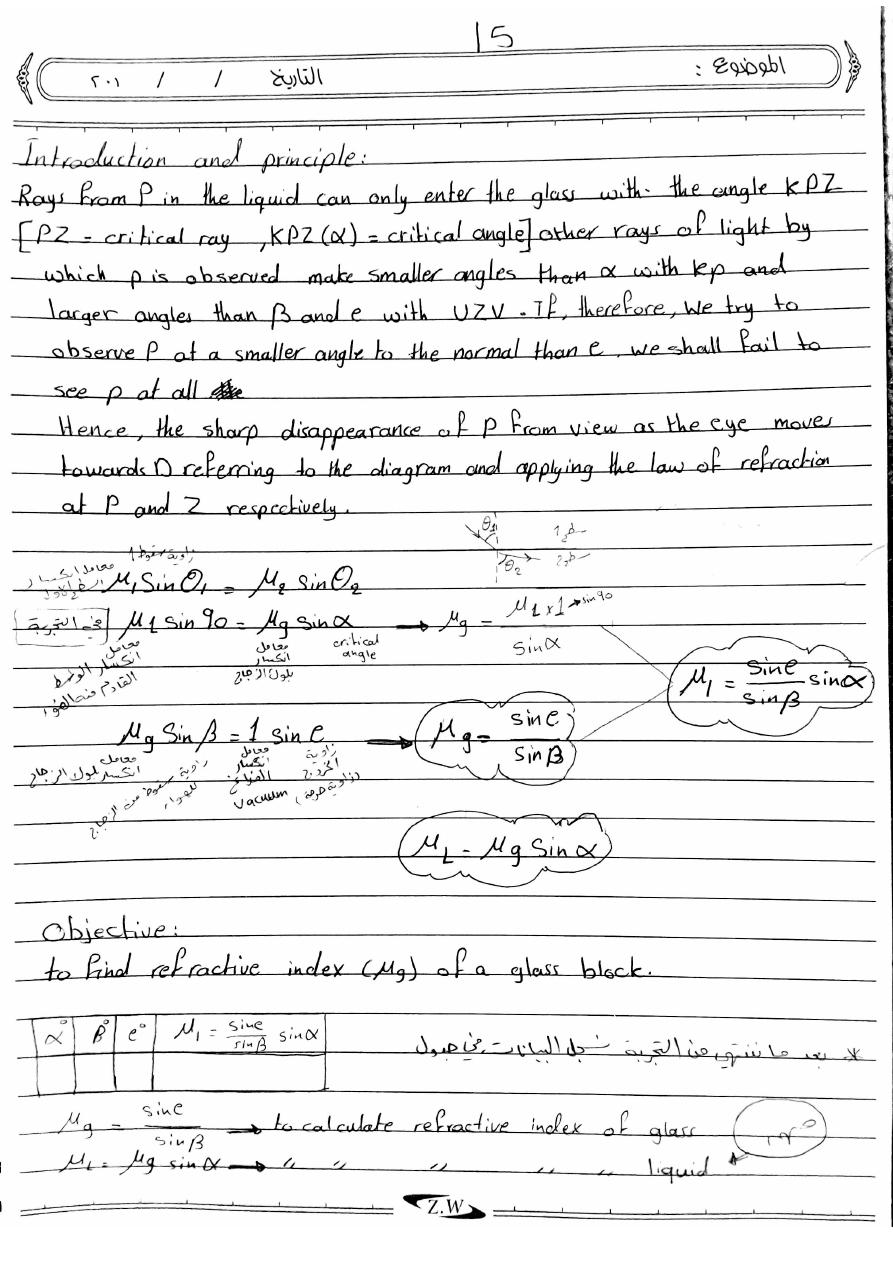 15
الموضوع :
التاريخ / / ٢٠١
Introduction and principle:
Rays from P in the liquid can only enter the glass with the angle KPZ
[PZ = critical ray , KPZ (α) = critical angle] other rays of light by
which p is observed make smaller angles than α with kp and
larger angles than β and e with UZV . If, therefore, we try to
observe P at a smaller angle to the normal than e, we shall fail to
see p at all
Hence, the sharp disappearance of P from view as the eye moves
towards D referring to the diagram and applying the law of refraction
at P and Z respectively.
زاوية سقوط 1
θ1
θ2
معامل انكسار
μ1 Sin θ1 = μ2 sin θ2
في التجربة μ1 sin 90 = μg sin α → μg = μ1 x 1 → sin 90 / sin α
معامل انكسار الوسط القادم منه الضوء
معامل انكسار بلوك الزجاج
critical angle
μ1 = sin e / sin β sin α
μg Sin β = 1 sin e → μg = sin e / sin β
معامل انكسار بلوك الزجاج
زاوية سقوط من الزجاج للهواء
معامل انكسار الفراغ
vacuum
زاوية الخروج
μL = μg Sin α
Objective:
to find refractive index (μg) of a glass block.
α° β° e° μ1 = sin e / sin β sin α
* بعد ما ننتهي من التجربة نسجل البيانات في جدول
μg = sin e / sin β → to calculate refractive index of glass
μL = μg sin α → " " " " " liquid
Z.W